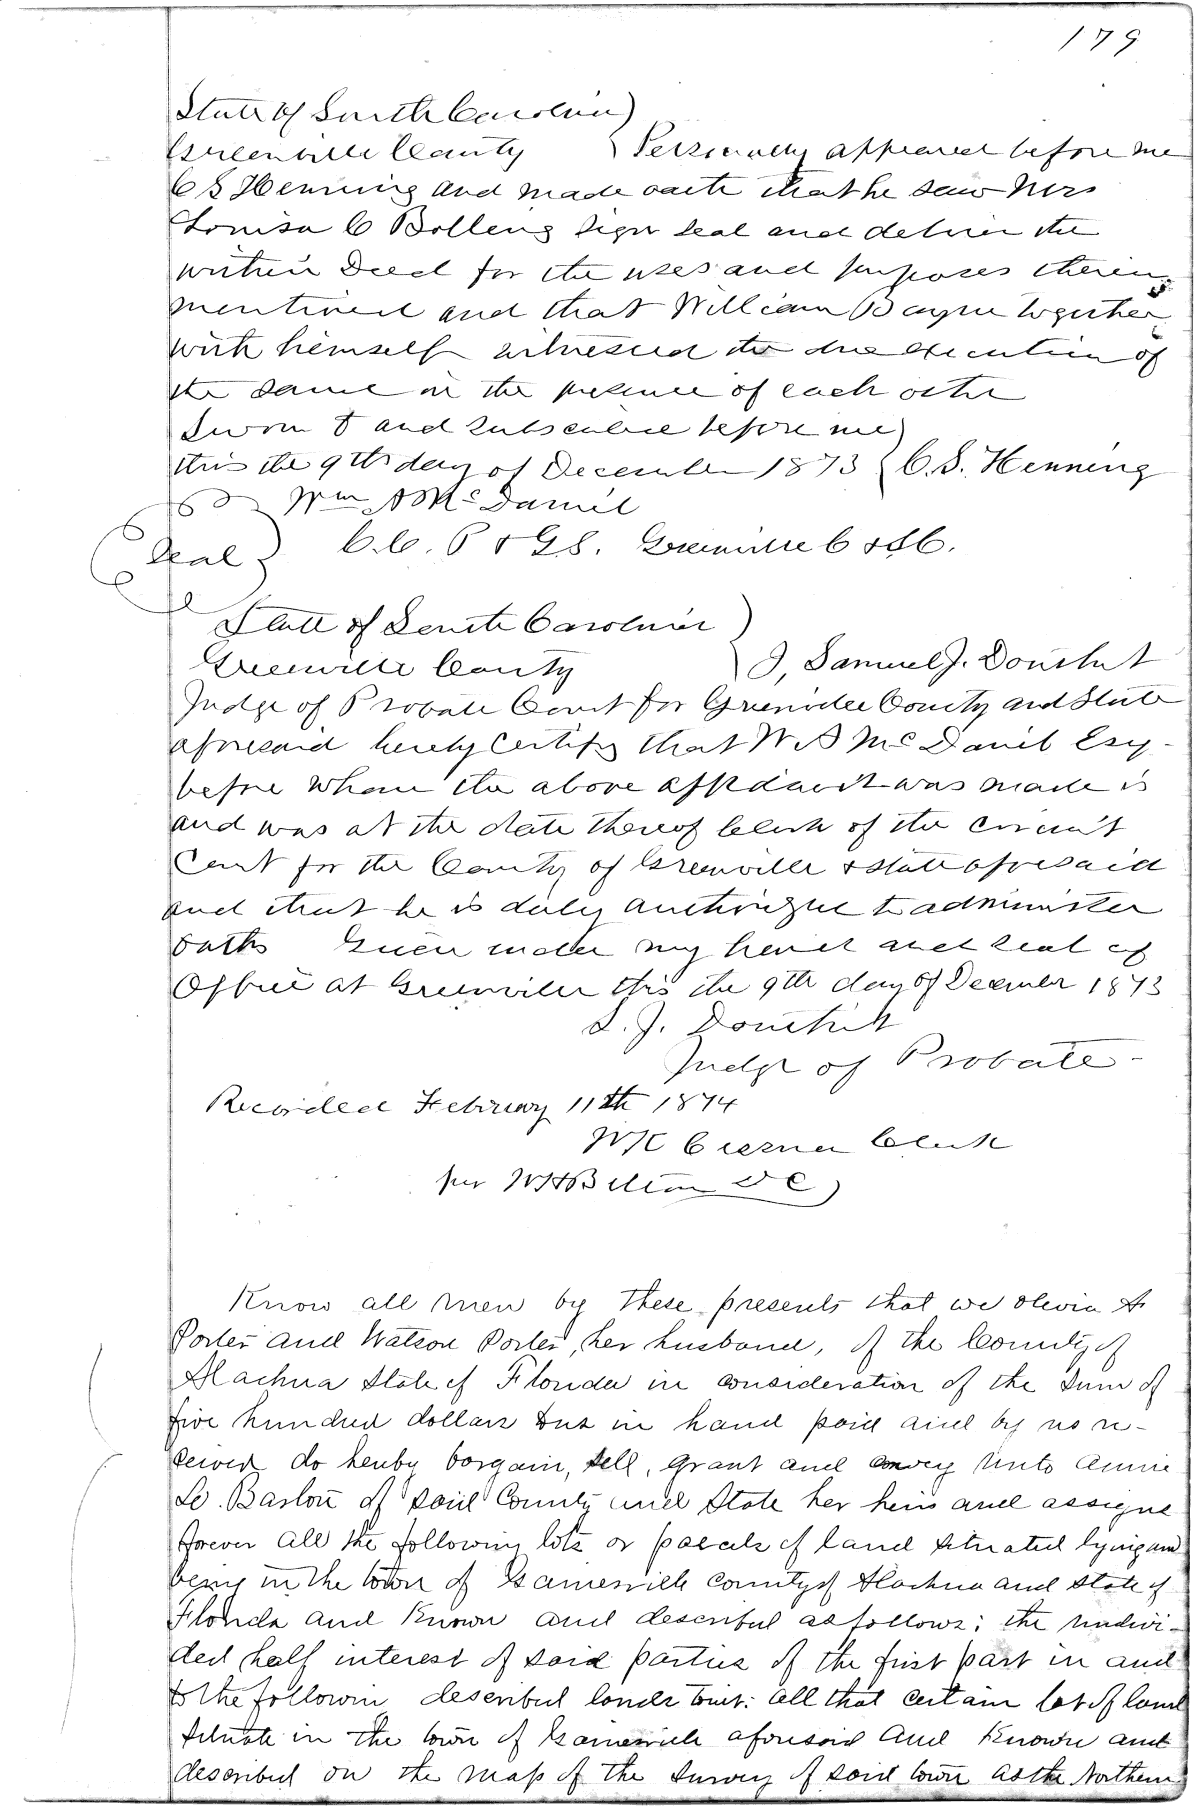 179
State of South Carolina )
Greenville County } Personally appeared before me
C S Henning and made oath that he saw Mrs
Louisa C Bolling sign seal and deliver the
within Deed for the uses and purposes therein
mentioned and that William Bayne together
with himself witnessed the due execution of
the same in the presence of each other
Sworn to and subscribed before me )
this the 9th day of December 1873 { C. S. Henning
Wm A McDaniel
Seal } C. C. P & G S. Greenville C & SC.
State of South Carolina )
Greenville County } I, Samuel J. Douthit
Judge of Probate Court for Greenville County and State
aforesaid hereby certify that W A McDaniel Esq-
before whom the above affidavit was made is
and was at the date thereof Clerk of the circuit
Court for the County of Greenville & state aforesaid
and that he is duly authorized to administer
oaths Given under my hand and seal of
Office at Greenville this the 9th day of December 1873
S. J. Douthit
Judge of Probate -
Recorded February 11th 1874
Clerk
per DC )
Know all men by these presents that we Olivia A
Porter and Watson Porter, her husband, of the County of
Alachua State of Florida in consideration of the Sum of
five hundred dollars to us in hand paid and by us re-
ceived do hereby bargain, sell, grant and convey unto Annie
Le. Barton of said County and State her heirs and assigns
forever all the following lots or parcels of land situated lying and
being in the town of Gainesville county of Alachua and State of
Florida and Known and described as follows; the undivi-
ded half interest of said parties of the first part in and
to the followin described lands towit: all that certain lot of land
situate in the town of Gainesville aforesaid and Known and
described on the map of the survey of said town as the Northern